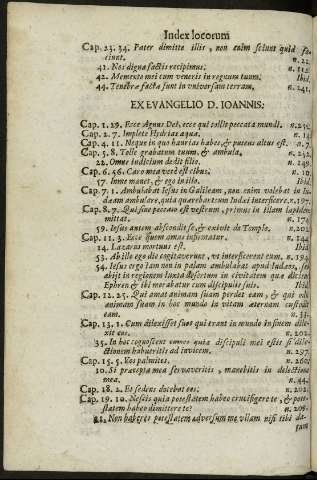 Index locorum
Cap. 23. 34. Pater dimitte illis, non enim sciunt quid fa-
ciunt. n. 22.
41. Nos digna factis recipimus. n. 113.
42. Memento mei cum veneris in regnum tuum. Ibid.
44. Tenebræ factæ sunt in universam terram. n. 241.
EX EVANGELIO D. IOANNIS:
Cap. 1. 29. Ecce Agnus Dei, ecce qui tollit peccata mundi.
Cap. 2. 7. Implete Hydrias aqua. n. 14.
Cap. 4. 11. Neque in quo haurias habes, & puteus altus est. n. 7.
Cap. 5. 8. Tolle grabatum tuum, & ambula. n. 242.
22. Omne iudicium dedit filio. n. 149.
Cap. 6. 56. Caro mea verè est cibus. n. 10.
57. In me manet, & ego in illo. Ibid.
Cap. 7. 1. Ambulabat Iesus in Galilæam, non enim volebat in Iu-
dæam ambulare, quia quærebant eum Iudæi interficere. n. 197.
Cap. 8. 7. Qui sine peccato est vestrum, primus in illam lapidem
mittat. n. 172.
59. Iesus autem abscondit se, & exivit de Templo. n. 202.
Cap. 11. 3. Ecce quem amas infirmatur. n. 144
14. Lazarus mortuus est. Ibid
53. Ab illo ergo die cogitaverunt, ut interficerent eum. n. 194
54. Iesus ergo iam non in palam ambulabat apud Iudæos, sed
abijt in regionem iuxta desertum in civitatem quæ dicitur
Ephren & ibi morabatur cum discipulis suis. Ibid.
Cap. 12. 25. Qui amat animam suam perdet eam, & qui odit
animam suam in hoc mundo in vitam æternam custodit
eam. n. 33.
Cap. 13. 1. Cum dilexisset suos qui erant in mundo in finem dile-
xit eos. n. 202.
35. In hoc cognoscent omnes quia discipuli mei estis si dile-
ctionem habueritis ad invicem. n. 297.
Cap. 15. 5. Vos palmites. n. 260.
10. Si præcepta mea servaveritis, manebitis in dilectione
mea. n. 44.
Cap. 18. 2. Et sedens docebat eos. n. 202.
Cap. 19. 10. Nescis quia potestatem habeo crucifigere te, & pote-
statem habeo dimittere te? n. 208.
11. Non haberes potestatem adversum me ullam nisi tibi da-
tum